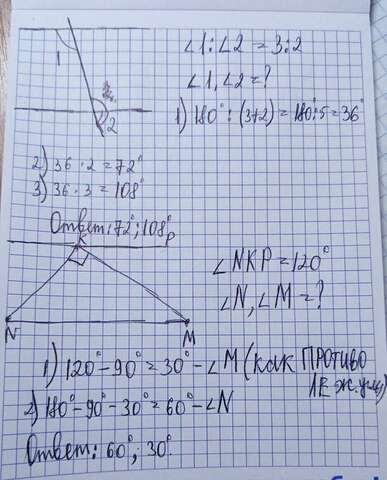 ∠1:∠2 = 3:2
1
∠1, ∠2 = ?
2
1) 180° : (3+2) = 180° : 5 = 36°
2) 36 · 2 = 72°
3) 36 · 3 = 108°
Ответ: 72°; 108°
K
P
∠NKP = 120°
∠N, ∠M = ?
N
M
1) 120° - 90° = 30° - ∠M (как противо
ле ж. углы)
2) 180° - 90° - 30° = 60° - ∠N
Ответ: 60°; 30°.